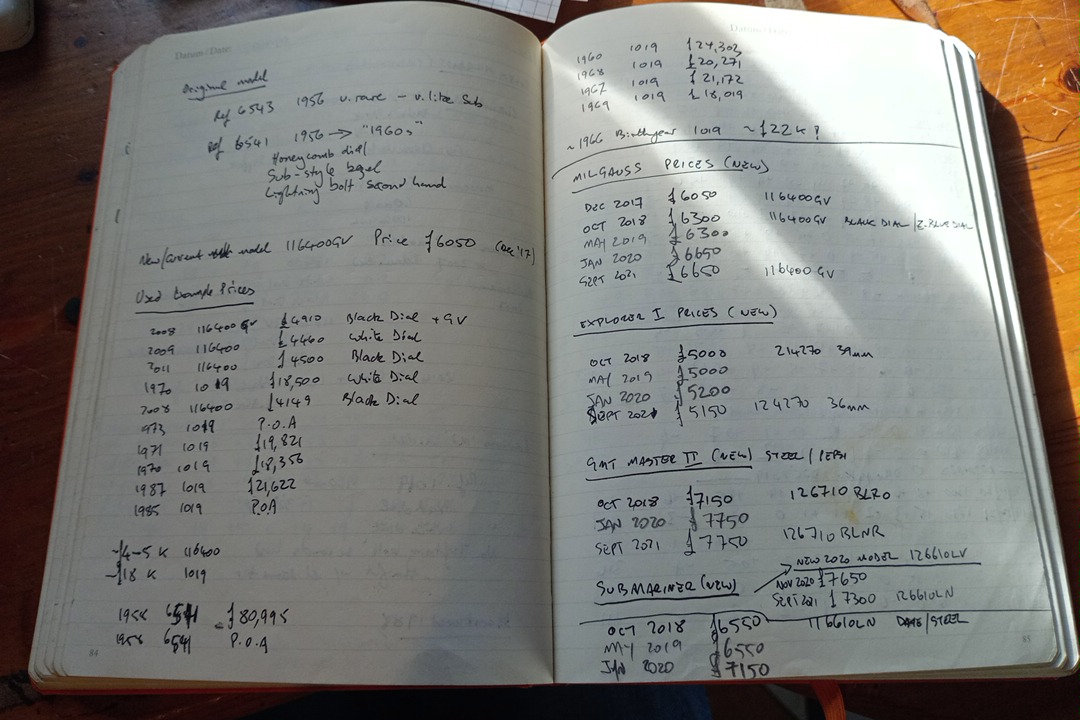 Datum / Date:
Original model
Ref 6543 1956 v.rare - v.like Sub
Ref 6541 1956 → "1960s"
Honeycomb dial
Sub-style bezel
Lightning bolt second hand
New/Current model 116400GV Price £6050 (Dec '17)
Used Example Prices
2008 116400 GV £4910 Black Dial + GV
2009 116400 £4460 White Dial
2011 116400 £4500 Black Dial
1970 1019 £18,500 White Dial
2008 116400 £4149 Black Dial
973 1019 P.O.A
1971 1019 £19,821
1970 1019 £18,356
1987 1019 £21,622
1985 1019 P.O.A
~£4-5 K 116400
~£18 K 1019
1958 6541 = £80,995
1958 6541 P.O.A
84
Datum / Date:
1960 1019 £24,303
1968 1019 £20,271
1967 1019 £21,172
1969 1019 £18,019
~1966 Birthyear 1019 ~£22k?
MILGAUSS PRICES (NEW)
DEC 2017 £6050 116400GV
OCT 2018 £6300 116400GV BLACK DIAL / Z.BLUE DIAL
MAY 2019 £6300
JAN 2020 £6650
SEPT 2021 £6650 116400 GV
EXPLORER I PRICES (NEW)
OCT 2018 £5000 214270 39mm
MAY 2019 £5000
JAN 2020 £5200
SEPT 2021 £5150 124270 36mm
GMT MASTER II (NEW) STEEL / PEPSI
OCT 2018 £7150 126710 BLRO
JAN 2020 £7750
SEPT 2021 £7750 126710 BLNR
NEW 2020 MODEL 126610LV
SUBMARINER (NEW) NOV 2020 £7650
SEPT 2021 £7300 126610LN
OCT 2018 £6550 116610LN DATE/STEEL
MAY 2019 £6550
JAN 2020 £7150
85